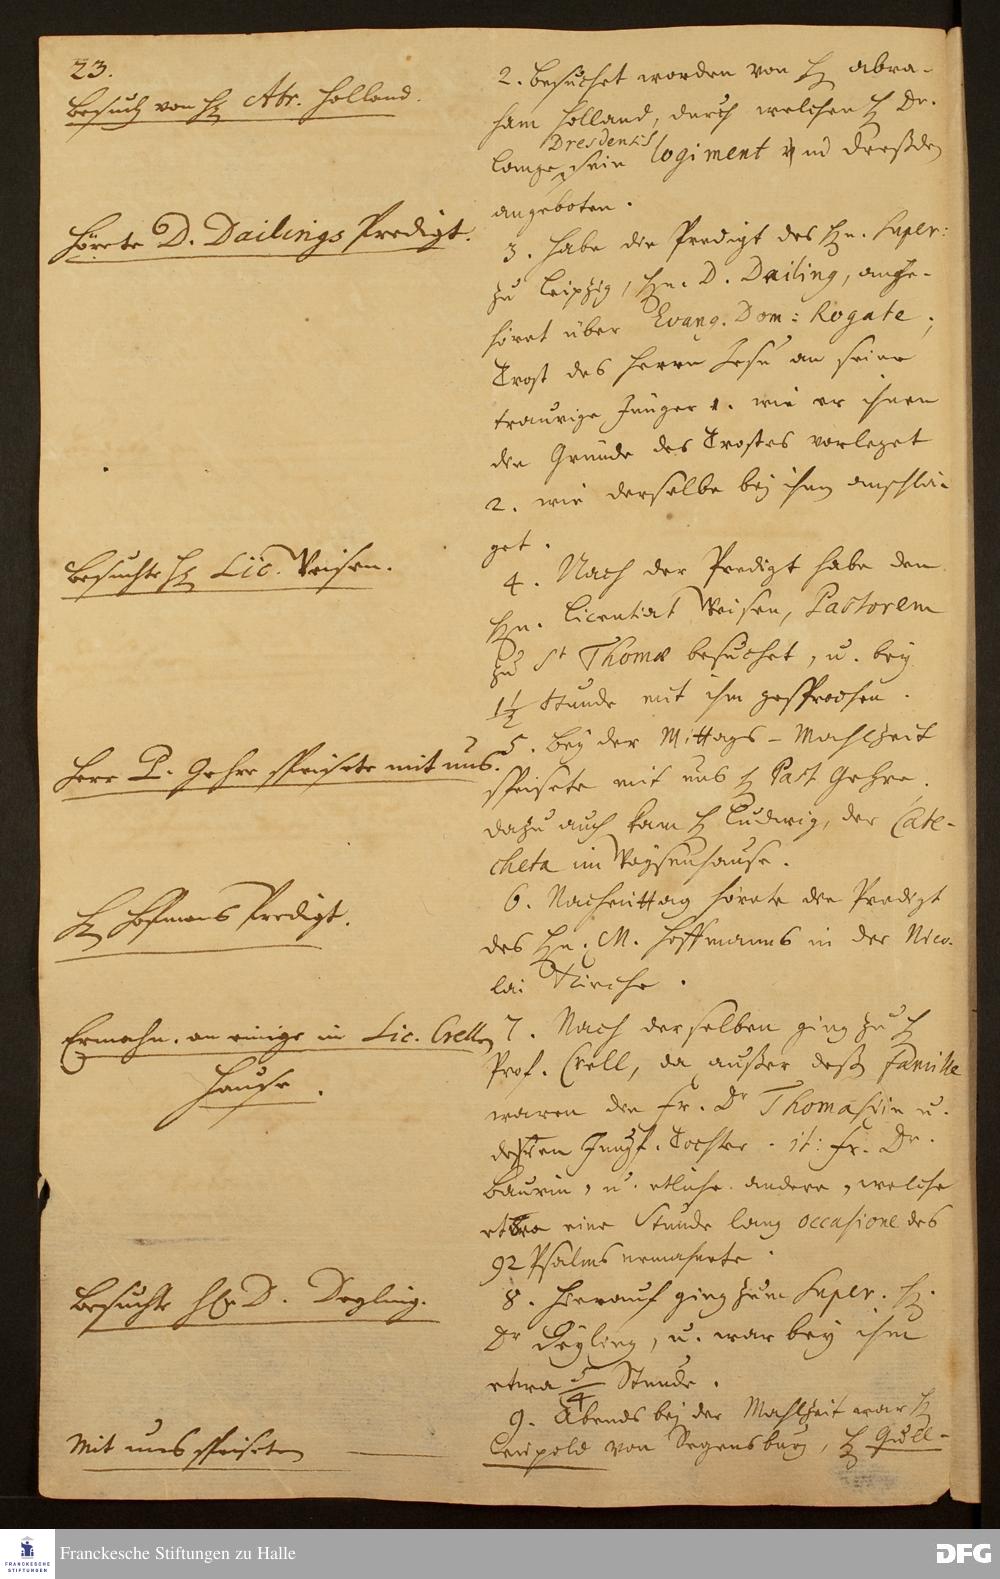 23.
Besuch von H Abr. Holland.
Hörete D. Dailings Predigt.
Besuchte H Lic. Weisen.
Herr P. Gehre speisete mit uns.
H Hofmans Predigt.
Ermahn. an einige in Lic. Crellen
Hause.
Besuchte H. D. Degling.
Mit uns speiseten
2. besuchet worden von H Abra-
ham Holland, durch welchen H Dr.
Dresdensis
Lange sein logiment in Dreßden
angeboten.
3. habe die Predigt des Hn. Super:
zu Leipzig, Hn. D. Dailing, ange-
höret über Evang. Dom: Rogate;
Trost des Herrn Jesu an seine
traurige Jünger 1. wie er ihnen
die Gründe des Trostes vorleget
2. wie derselbe bey ihnen anschlä-
get.
4. Nach der Predigt habe den
Hn. Licentiat Weisen, Pastorem
zu St Thomæ besuchet, u. bey
1½ Stunde mit ihm gesprochen.
5. Bey der Mittags-Mahlzeit
speisete mit uns H Past Gehre,
dazu auch kam H Ludwig, der Cate-
cheta im Waysenhause.
6. Nachmittag hörete die Predigt
des Hn. M. Hoffmanns in der Nico-
lai Kirche.
7. Nach derselben ging zu H
Prof. Crell, da außer deß Famille
waren die Fr. Dr Thomasiin u.
dessen Jungf. Tochter. it: Fr. Dr.
Baurin, u. etliche andere, welche
etwa eine Stunde lang occasione des
92 Psalms ermahnete.
8. Hierauf ging zum Super. H.
Dr Deyling, u. war bey ihm
etwa 5/4 Stunde.
9. Abends bey der Mahlzeit war H
Leupold von Regensburg, H
Franckesche Stiftungen zu Halle
FRANCKESCHE
STIFTUNGEN
DFG